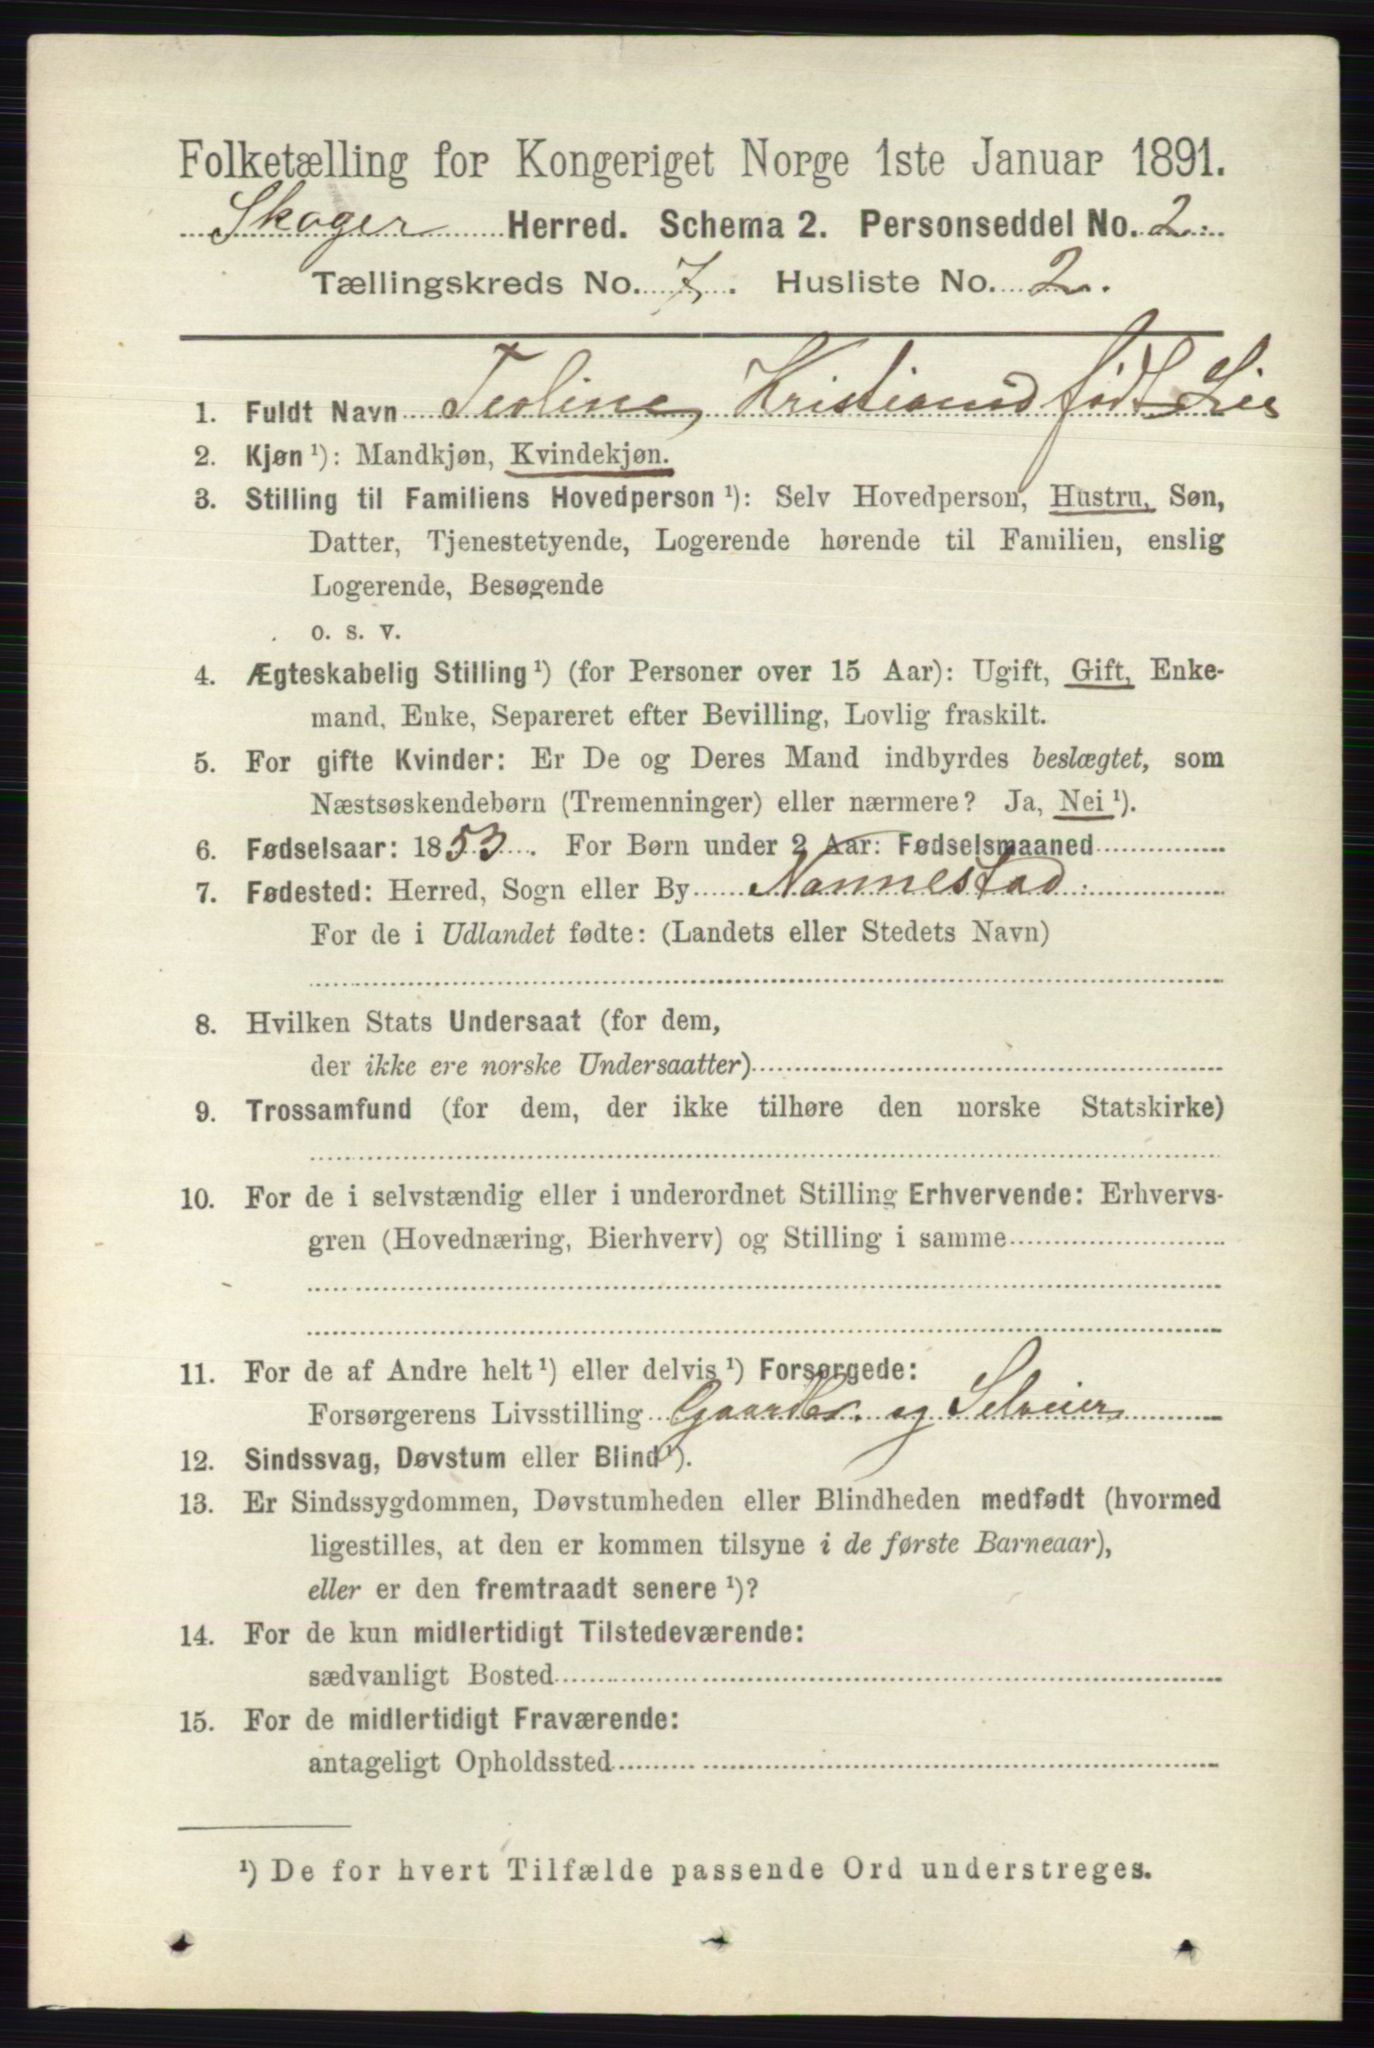 Folketælling for Kongeriget Norge 1ste Januar 1891.
Skoger Herred. Schema 2. Personseddel No. 2.
Tællingskreds No. 7. Husliste No. 2.
1. Fuldt Navn Teoline født Lie
2. Kjøn ¹): Mandkjøn, Kvindekjøn.
3. Stilling til Familiens Hovedperson ¹): Selv Hovedperson, Hustru, Søn,
Datter, Tjenestetyende, Logerende hørende til Familien, enslig
Logerende, Besøgende
o. s. v.
4. Ægteskabelig Stilling ¹) (for Personer over 15 Aar): Ugift, Gift, Enke-
mand, Enke, Separeret efter Bevilling, Lovlig fraskilt.
5. For gifte Kvinder: Er De og Deres Mand indbyrdes beslægtet, som
Næstsøskendebørn (Tremenninger) eller nærmere? Ja, Nei ¹).
6. Fødselsaar: 1853. For Børn under 2 Aar: Fødselsmaaned
7. Fødested: Herred, Sogn eller By Nannestad
For de i Udlandet fødte: (Landets eller Stedets Navn)
8. Hvilken Stats Undersaat (for dem,
der ikke ere norske Undersaatter)
9. Trossamfund (for dem, der ikke tilhøre den norske Statskirke)
10. For de i selvstændig eller i underordnet Stilling Erhvervende: Erhvervs-
gren (Hovednæring, Bierhverv) og Stilling i samme
11. For de af Andre helt ¹) eller delvis ¹) Forsørgede:
Forsørgerens Livsstilling og Selveier
12. Sindssvag, Døvstum eller Blind ¹).
13. Er Sindssygdommen, Døvstumheden eller Blindheden medfødt (hvormed
ligestilles, at den er kommen tilsyne i de første Barneaar),
eller er den fremtraadt senere ¹)?
14. For de kun midlertidigt Tilstedeværende:
sædvanligt Bosted
15. For de midlertidigt Fraværende:
antageligt Opholdssted
¹) De for hvert Tilfælde passende Ord understreges.